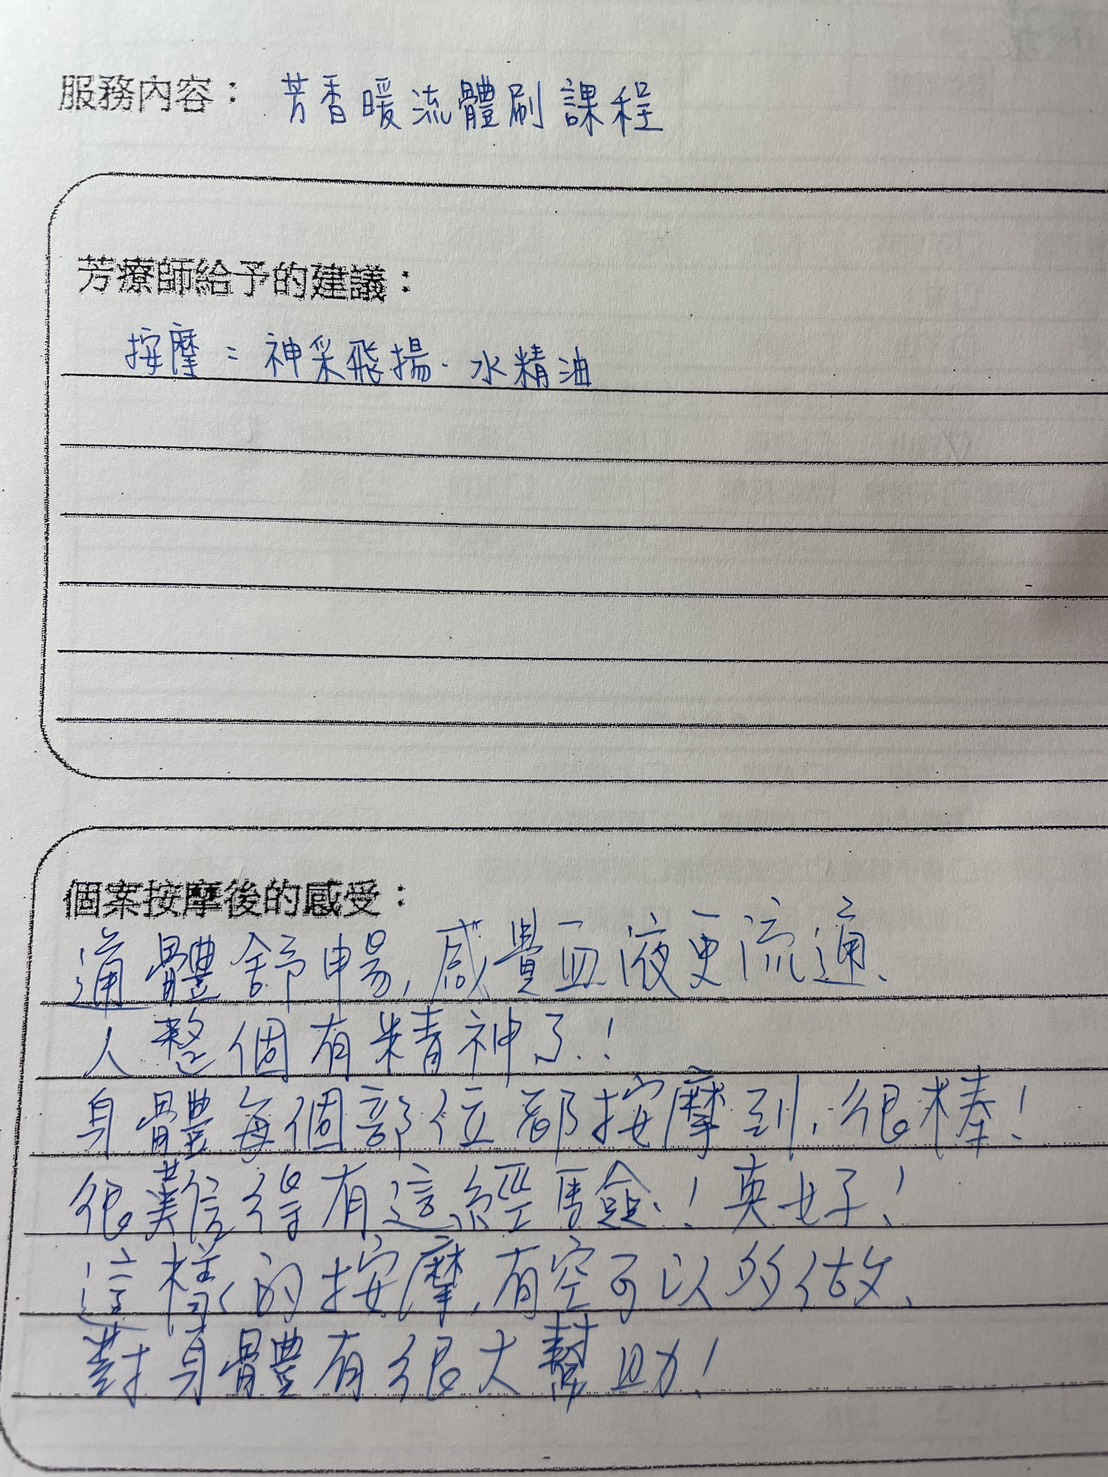 服務內容： 芳香暖流體刷課程
芳療師給予的建議：
按摩：神采飛揚．水精油
個案按摩後的感受：
通體舒暢,感覺血液更流通、
人整個有精神了！
身體每個部位都按摩到,很棒！
很難得有這經驗！真好！
這樣的按摩,有空可以多做、
對身體有很大幫助！